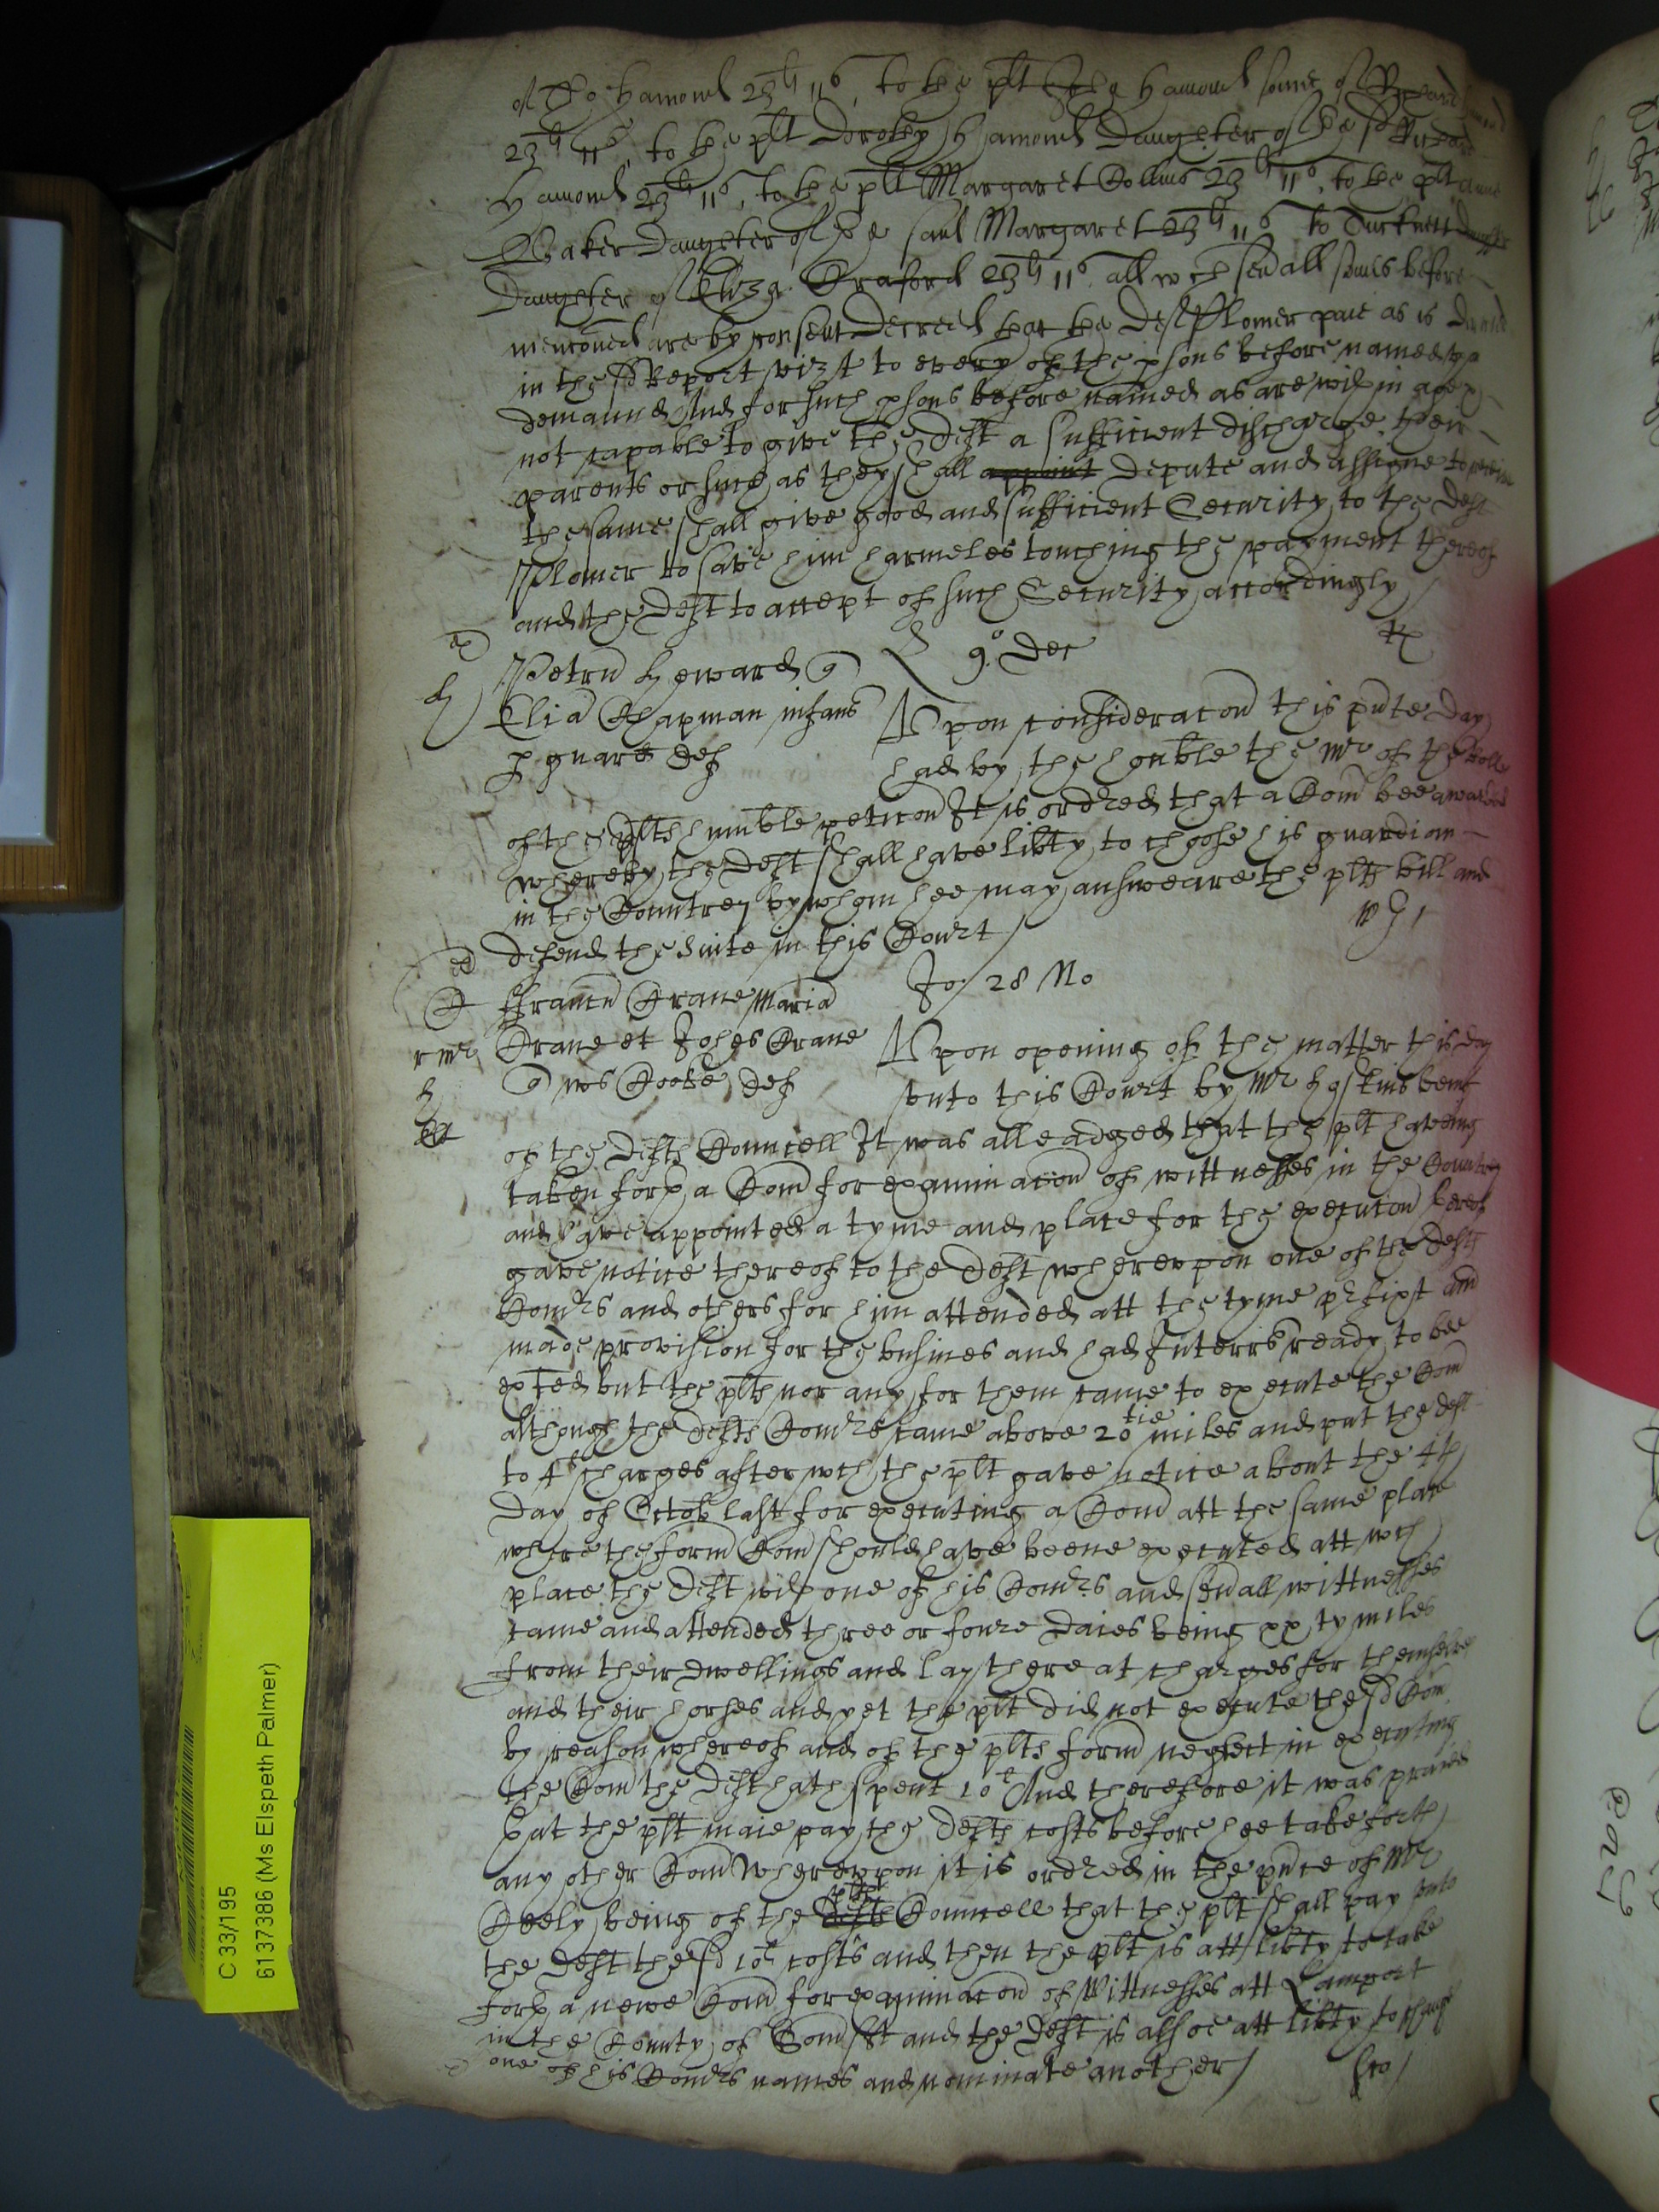 of Tho: Hamond 23li 11s, to the plt John Hamond sonne of Richard
23li 11s, to the plt Dorothy Hamond Daughter of the sd Richard
Hamond 23li 11s, to the plt Margaret Collins 23li 11s, to the plt Anne
Baker Daughter of the said Margaret 23li 11s to
Daughter of Eliza: Craford 23li 11s, all wch seuall somes before
menconed are by consent Decreed that the Deft Plomer paie as is
in the sd Report vizt to every of the psons before named vpp
demaund And for such psons before named as are wthin age &
not capable to give the Deft a sufficient discharge, their
parents or such as they shall appoint depute and assigne to receive
the same shall give good and sufficient Security to the Deft
Plomer to save him harmeles touching the payment thereof
and the Deft to accept of such Security accordingly
Petru Heward q
9o Dec
Elia Chapman infans
Vpon consideracon this pnte day
p guard def
had by the honble the Mr of the Rolls
of the plts humble peticon It is ordred that a Com bee awarded
whereby the Deft shall have libty to choose his guardian
in the Countrey by whom hee may answeare the plts bill and
defend the suite in this Court
Jo: 28 No
ffrancu Crane Maria
Crane et Johes Crane
Vpon opening of the matter this day
q ws Cooke def
vnto this Court by Mr Hoskins being
of the Defts Councell It was alleadged that the plt haveing
taken forth a Com for examinacon of wittnesses in the Countrey
and have appointed a tyme and place for the execucon thereof
gave notice thereof to the Deft wherevpon one of the Defts
Comrs and others for him attended att the tyme prfixt and
made provision for the busines and had Interrs ready to bee
exted but the plts nor any for them came to execute the Com
although the Defts Comrs came above 20tie miles and put the deft
to 4li charges after wch the plt gave notice about the 4th
day of Octob last for executing a Com att the same place
where the form Com should have beene executed att wch
place the Deft wth one of his Comrs and seuall wittnesses
came and attended three or foure daies being xxty miles
from their dwellings and lay there at charges for themselves
and their horses and yet the plt did not execute the sd Com
by reason whereof and of the plts form neglect in executing
the Com the Deft hath spent 10li And therefore it was praied
that the plt maie pay the Defts costs before hee take forth
any other Com Wherevpon it is ordred in the pnce of Mr
Keely being of the Defts plts Councell that the plt shall pay vnto
the Deft the sd 10li costs and then the plt is att libty to take
forth a newe Com for examinacon of Wittnesses att Lamport
in the County of Somsst and the Deft is alsoe att libty to change
one of his Comrs names and nominate another
C 33/195
6137386 (Ms Elspeth Palmer)